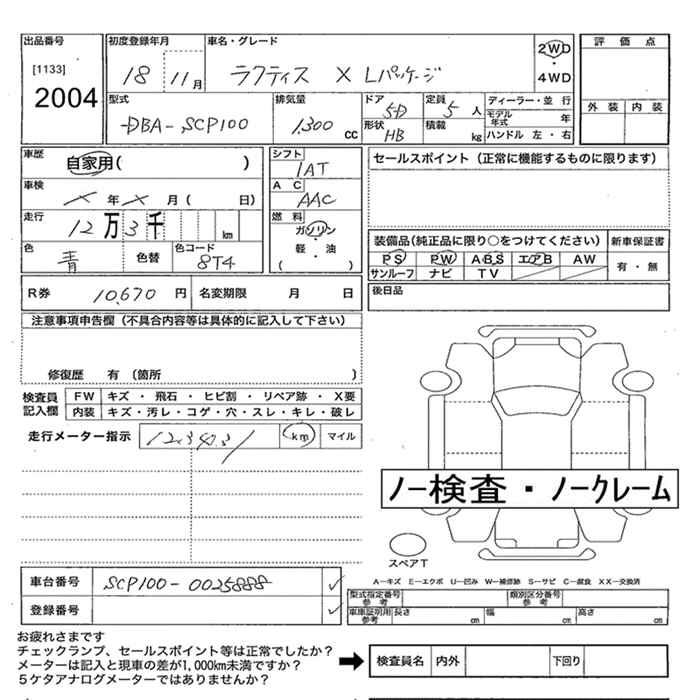 出品番号 初度登録年月 車名・グレード 2WD 評価点
[1133] 18 11月 ラクティス X Lパッケージ 4WD
2004 外装 内装
型式 排気量 ドア 5D 定員 5人 ディーラー・並行
DBA-SCP100 1,300cc 形状 HB 積載 kg モデル年式 年
ハンドル 左・右
車歴 自家用( ) シフト 1AT セールスポイント(正常に機能するものに限ります)
車検 年 月( 日) AC AAC
走行 12万3千 km 燃料 ガソリン 軽・油 ( )
色 青 色替 色コード 8T4
装備品(純正品に限り○をつけてください) 新車保証書
PS PW ABS エアB AW 有・無
サンルーフ ナビ TV
R券 10,670円 名変期限 月 日 後日品
注意事項申告欄(不具合内容等は具体的に記入して下さい)
修復歴 有(箇所 )
検査員記入欄 FW キズ・飛石・ヒビ割・リペア跡・X要
内装 キズ・汚レ・コゲ・穴・スレ・キレ・破レ
走行メーター指示 km マイル
ノー検査・ノークレーム
スペアT
車台番号 SCP100-0025888
登録番号
A-キズ E-エクボ U-凹み W-補修跡 S-サビ C-腐食 XX-交換済
型式指定番号 参考 類別区分番号 参考
車庫証明用 参考 長さ cm 幅 cm 高さ cm
お疲れさまです
チェックランプ、セールスポイント等は正常でしたか?
メーターは記入と現車の差が1,000km未満ですか?
5ケタアナログメーターではありませんか?
検査員名 内外 下回り